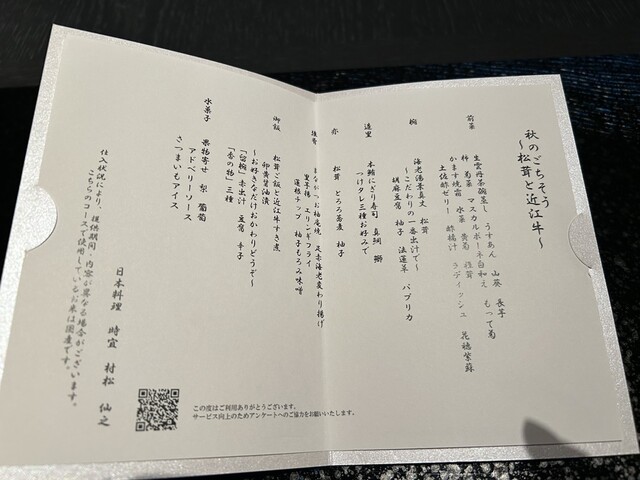 秋のごちそう
～松茸と近江牛～
前菜
生雲丹茶碗蒸し うすあん 山葵 長芋
柿 菊菜 マスカルポーネ白和え もって菊
かます焼霜 水菜 黄菊 椎茸 花穂紫蘇
土佐酢ゼリー 酢橘汁 ラディッシュ
椀
海老湯葉真丈 松茸
～こだわりの一番出汁で～
胡麻豆腐 柚子 法蓮草 パプリカ
造里
本鮪にぎり寿司 真鯛 鰤
つけタレ三種お好みで
松茸 とろろ蒸煮 柚子
まながつお柚庵焼 足赤海老変わり揚げ
里芋揚 エリンギフライ
蓮根チップ 柚子もろみ味噌
御飯
松茸ご飯と近江牛すき煮
卵黄醤油漬
～お好きなだけおかわりどうぞ～
「留椀」赤出汁 豆腐 辛子
「香の物」三種
水菓子
果物寄せ 梨 葡萄
アドベリーソース
さつまいもアイス
仕入状況により、提供期間・内容が異なる場合がございます。
こちらのコースで使用しているお米は国産です。
日本料理 時宜 村松 仙之
この度はご利用ありがとうございます。
サービス向上のためアンケートへのご協力をお願いいたします。